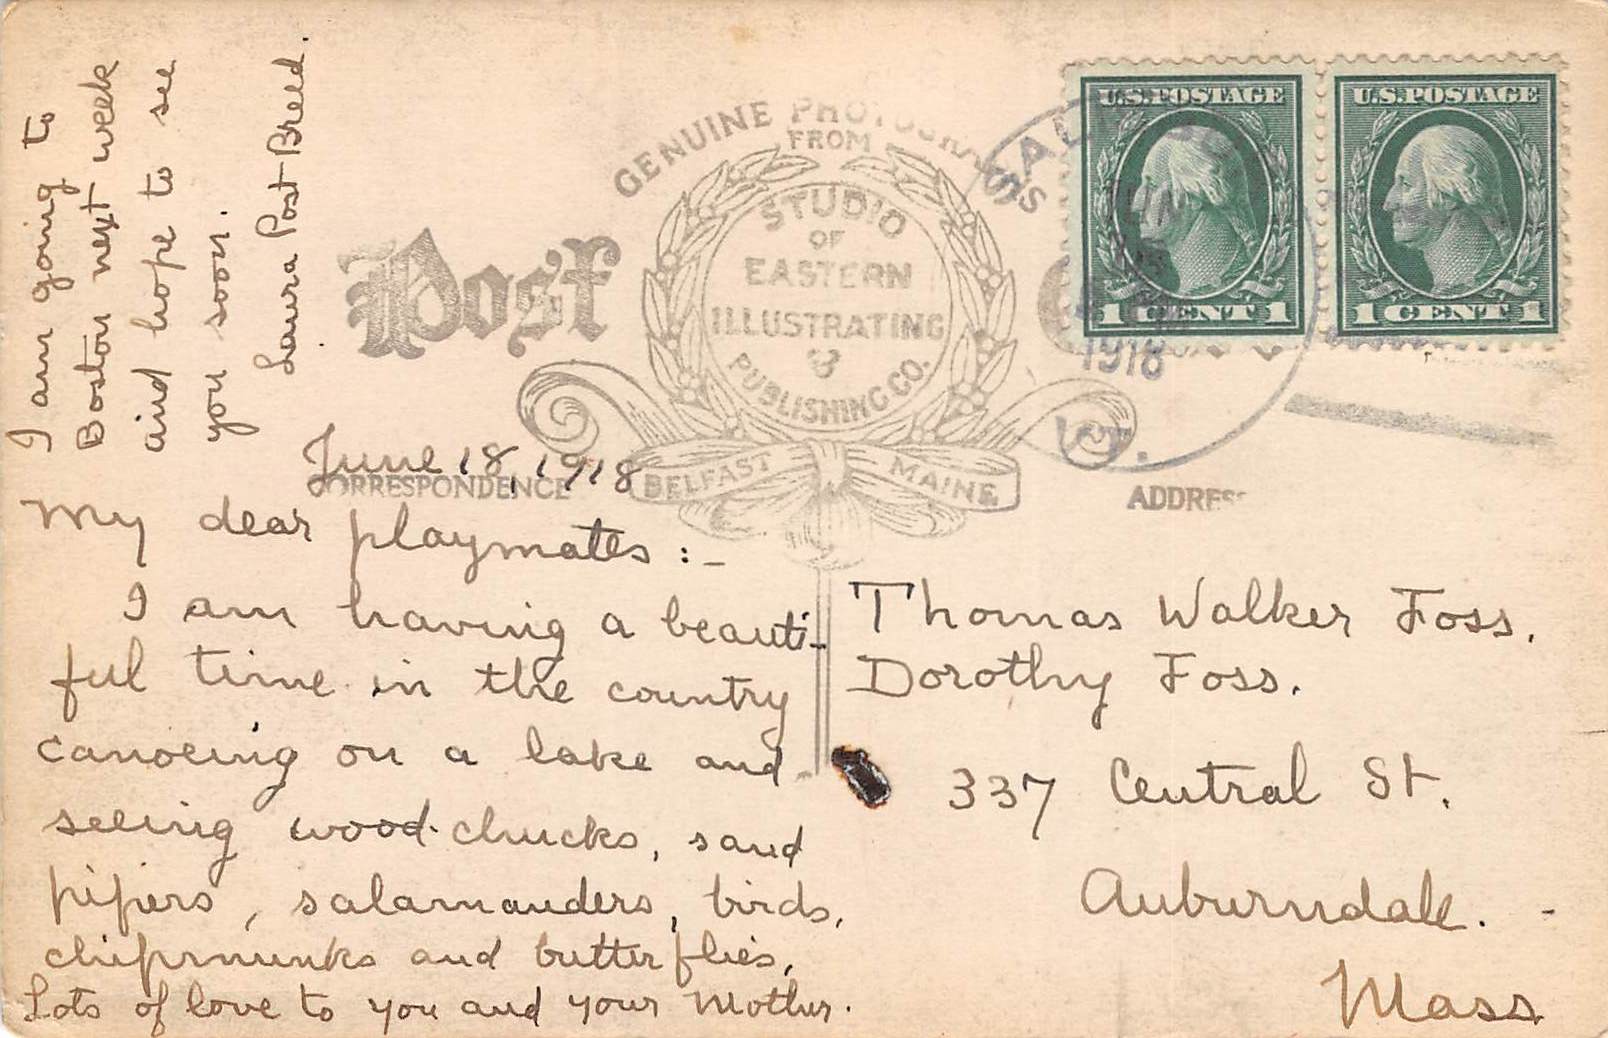 GENUINE PHOTOGRAPHS
FROM
STUDIO
OF
EASTERN
ILLUSTRATING
&
PUBLISHING CO.
BELFAST MAINE
Post
CORRESPONDENCE
ADDRESS
U.S. POSTAGE
1 CENT 1
U.S. POSTAGE
1 CENT 1
1918
VT.
June 18, 1918
My dear playmates:-
I am having a beauti-
ful time in the country
canoeing on a lake and
seeing wood-chucks, sand
pipers, salamanders, birds,
chipmunks and butterflies.
Lots of love to you and your Mother.
I am going to
Boston next week
and hope to see
you soon.
Laura Post Breed.
Thomas Walker Foss.
Dorothy Foss.
337 Central St.
Auburndale.
Mass